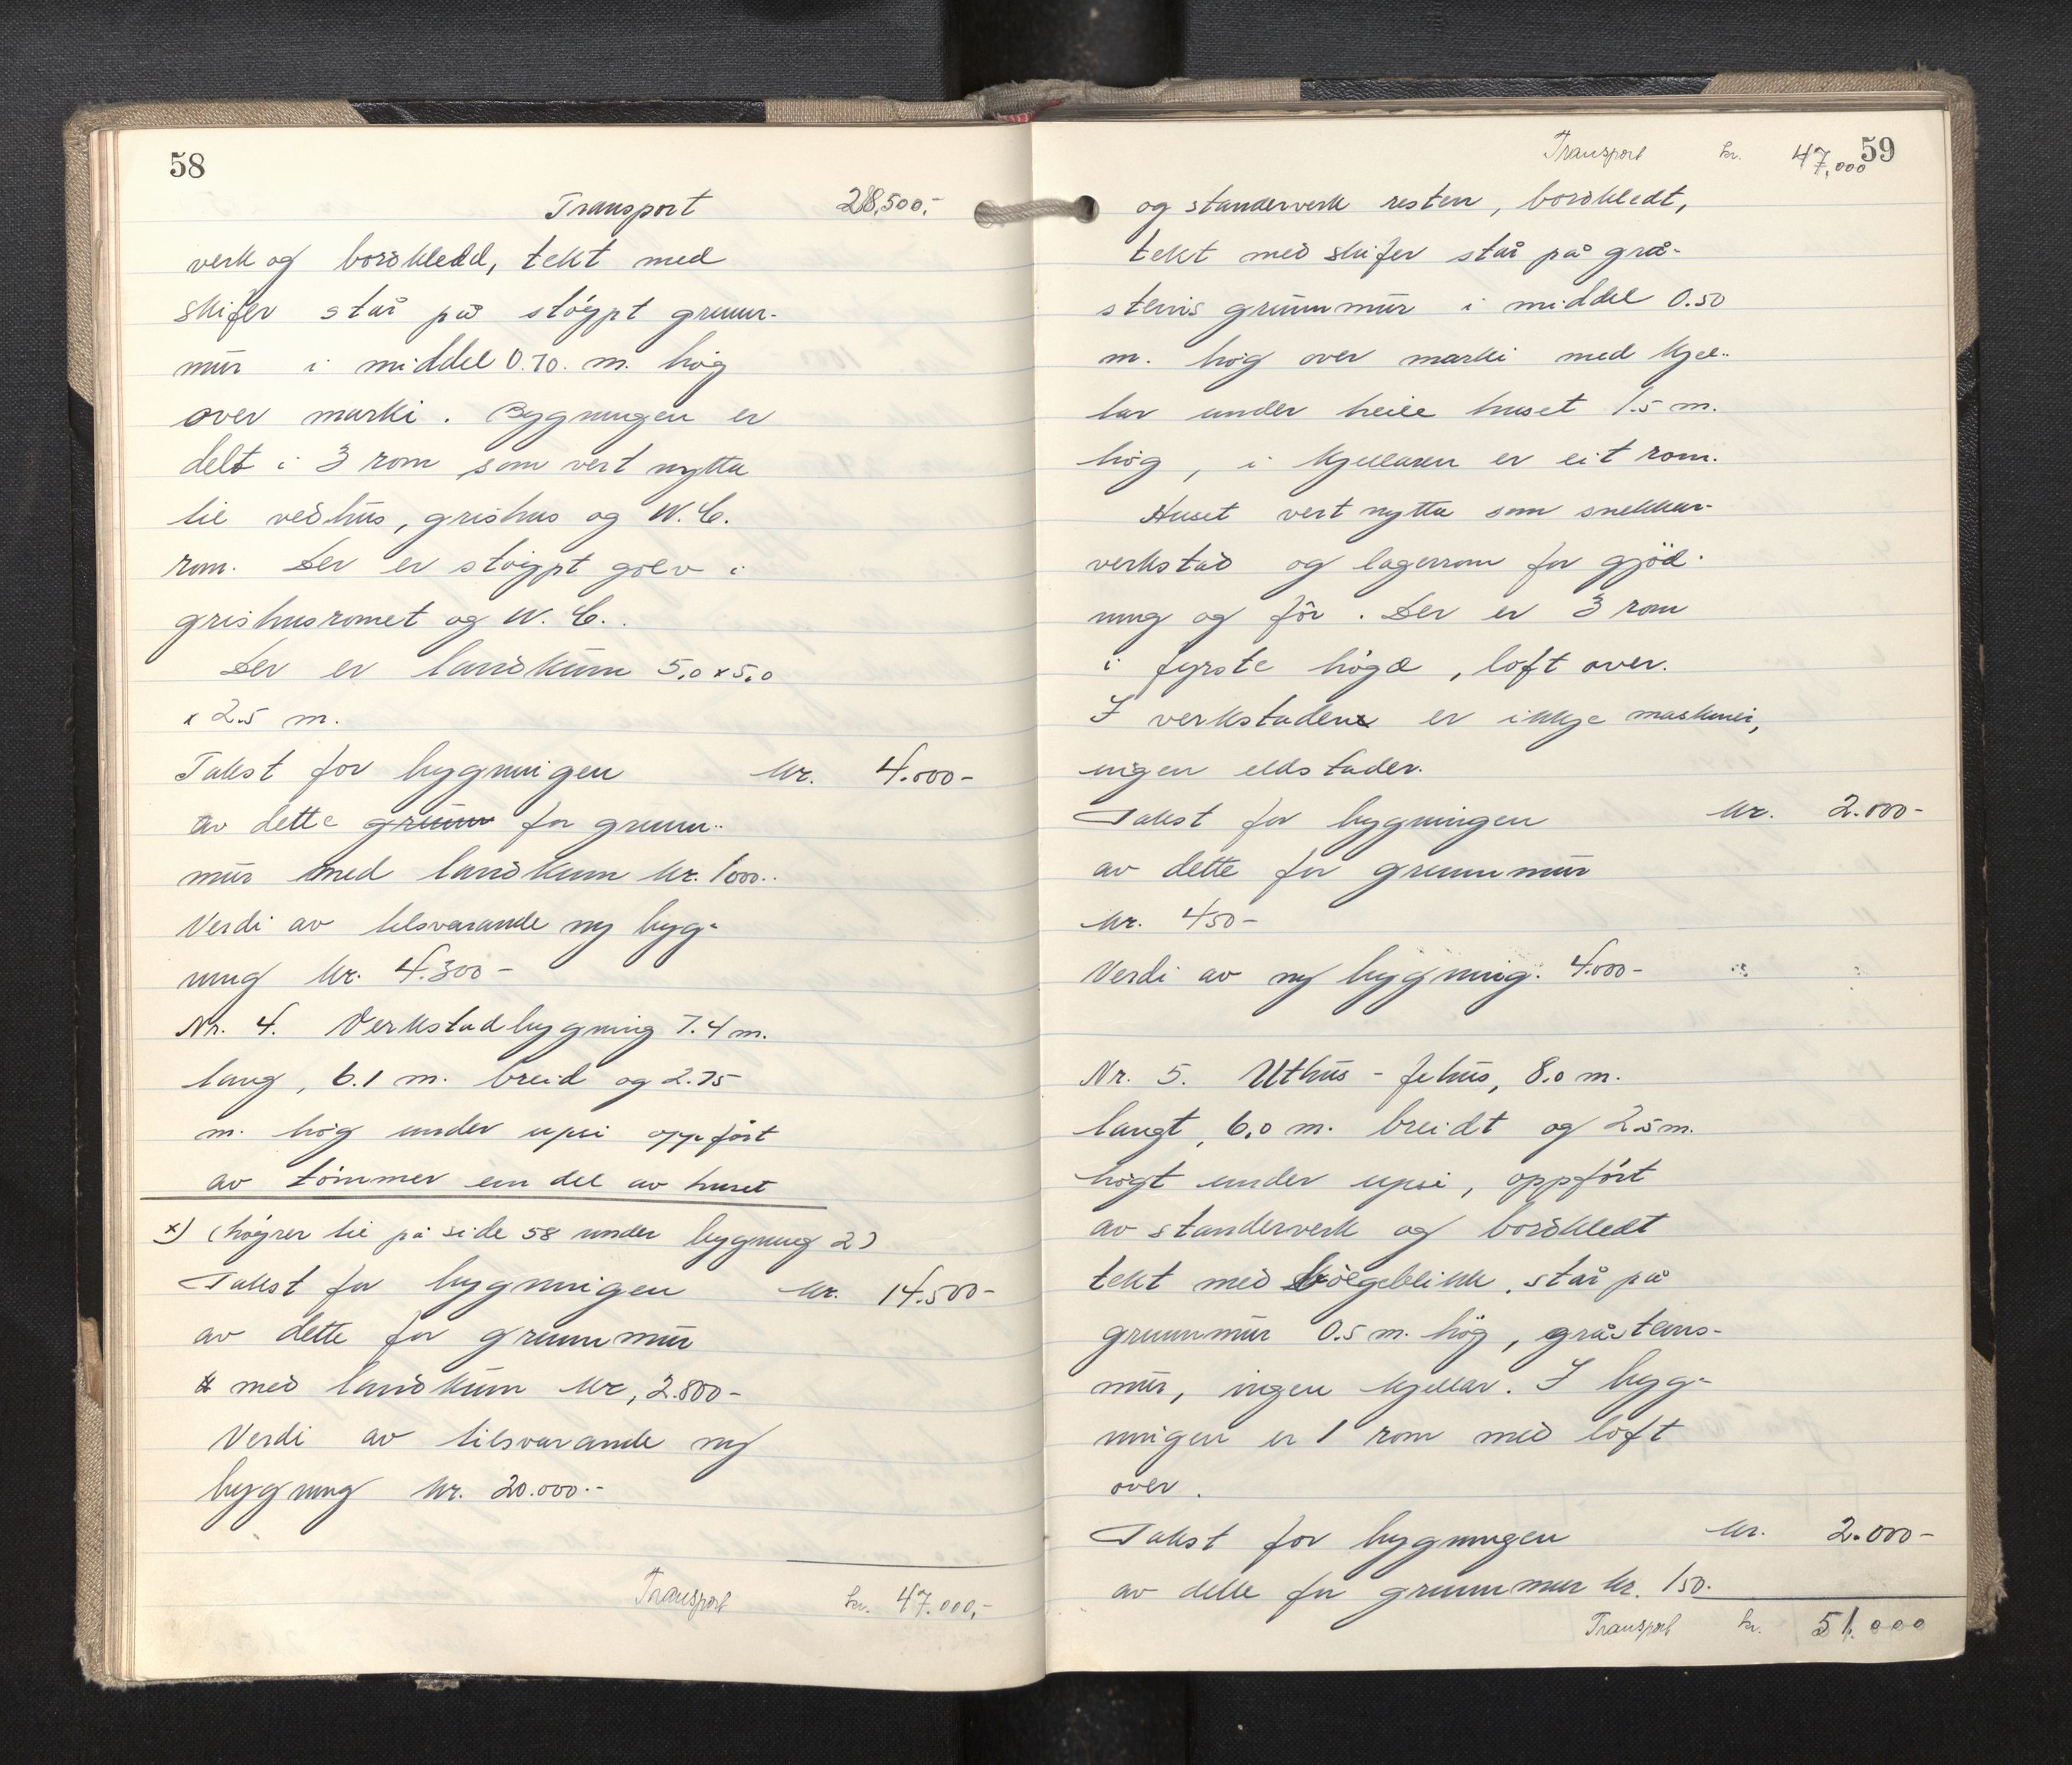 58
Transport 28,500,-
verk og bordkledd, tekt med
skifer står på støypt grunn-
mur i middel 0.70. m. høg
over marki. Bygningen er
delt i 3 rom som vert nytta
til vedhus, grishus og W.C.
rom. Der er støypt golv i
grishusromet og W.C..
Der er landkum 5,0 x 5,0
x 2.5 m.
Takst for bygningen kr. 4.000-
av dette grunn for grunn-
mur med landkum kr. 1000..
Verdi av tilsvarande ny byg-
ning kr. 4.300-
Nr. 4. Verkstadbygning 7.4 m.
lang, 6.1 m. breid og 2.75
m. høg under upsi oppført
av tømmer ein del av huset
x) (høyrer til på side 58 under bygning 2)
Takst for bygningen kr. 14.500-
av dette for grunnmur
med landkum kr, 2.800-
Verdi av tilsvarande ny
bygning kr. 20.000.-
Transport kr. 47.000,-
59
Transport kr. 47,000
og standerverk resten, bordkledt,
tekt med skifer står på grå-
steins grunnmur i middel 0.50
m. høg over marki med kjel-
lar under heile huset 1.5 m.
høg, i kjellaren er eit rom.
Huset vert nytta som snekkar-
verkstad og lagerrom for gjöd-
ning og fôr. Der er 3 rom
i fyrste högd, loft over.
I verkstaden er ikkje maskiner,
ingen eldstader.
Takst for bygningen kr. 2.000-
av dette for grunnmur
kr. 450-
Verdi av ny bygning. 4.000-
Nr. 5. Uthus - fehus, 8.0 m.
langt, 6,0 m. breidt og 2.5 m.
høgt under upsi, oppført
av standerverk og bordkledt
tekt med bölgeblikk, står på
grunnmur 0.5 m. hög, gråsteins-
mur, ingen kjellar. I byg-
ningen er 1 rom med loft
over.
Takst for bygningen kr. 2.000-
av dette for grunnmur kr. 150.
Transport kr. 51.000